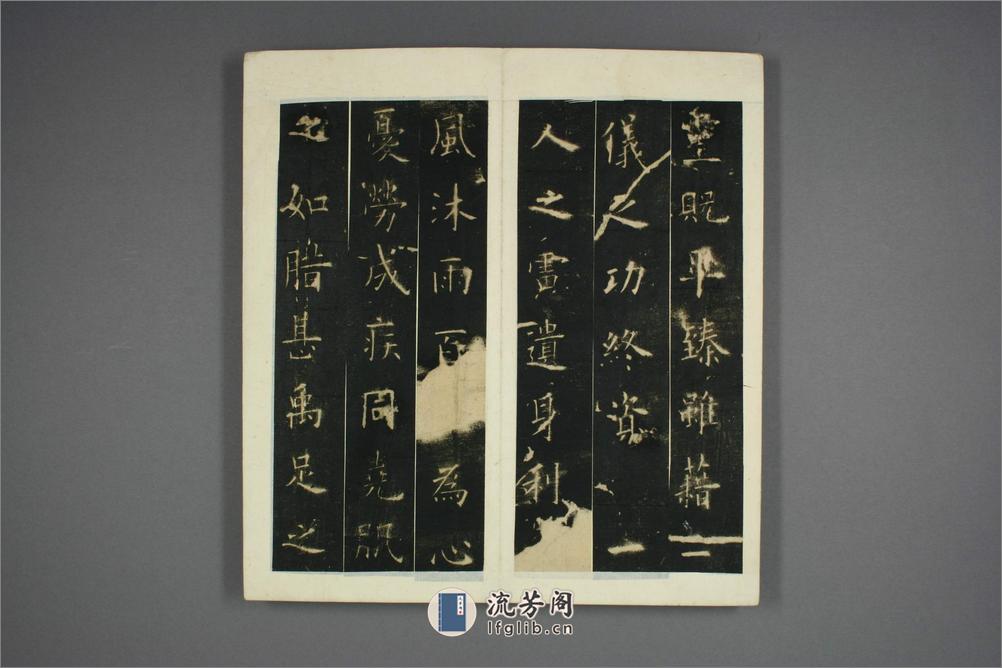 靈貺畢臻雖藉二
儀之功終資一
人之慮遺身利
風沐雨百為心
憂勞成疾同堯肌
之如腊甚禹足之
流芳阁
lfglib.cn